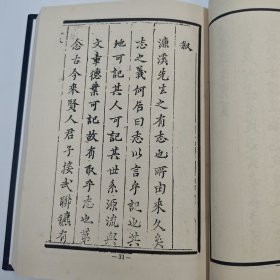 叙
濂溪先生之有志也所由来久矣
志之義何居曰志以言乎記也其
地可記其人可記其世系源流與
文章德業可記故有取乎志也
念古今来賢人君子接武聯鑣者
—31—